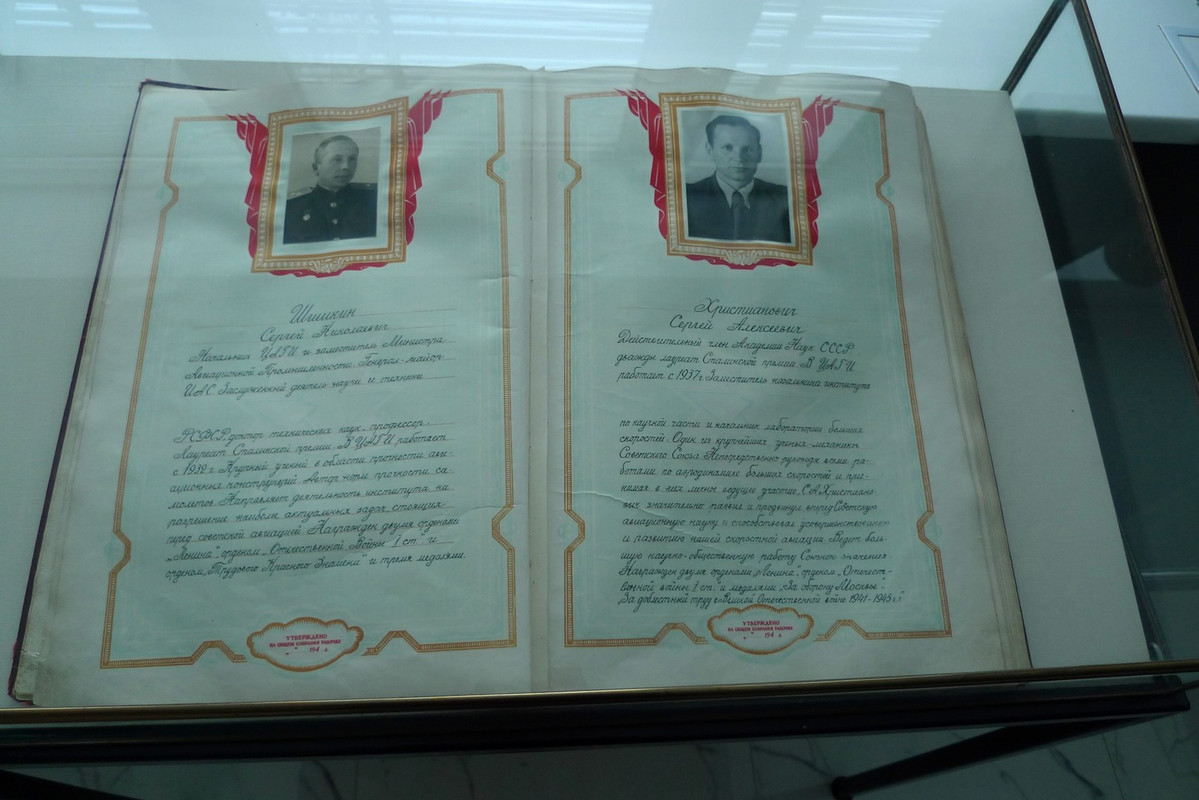 Шишкин
Сергей Николаевич
Начальник ЦАГИ и заместитель Министра
Авиационной Промышленности. Генерал-майор
ИАС. Заслуженный деятель науки и техники
РСФСР, доктор технических наук, профессор
Лауреат Сталинской премии. В ЦАГИ работает
с 1932 г. Крупный ученый в области прочности ави-
ационных конструкций. Автор норм прочности са-
молетов. Направляет деятельность института на
разрешение наиболее актуальных задач стоящих
перед советской авиацией. Награжден двумя орденами
„Ленина", орденом „Отечественной Войны I ст." и
орденом „Трудового Красного Знамени и тремя медалями.
УТВЕРЖДЕНО
НА ОБЩЕМ СОБРАНИИ РАБОЧИХ
" " 194 г.
Христианович
Сергей Алексеевич
Действительный член Академии Наук СССР,
дважды лауреат Сталинской премии. В ЦАГИ
работает с 1937 г. Заместитель начальника института
по научной части и начальник лаборатории больших
скоростей. Один из крупнейших ученых-механиков
Советского Союза. Непосредственно руководя всеми ра-
ботами по аэродинамике больших скоростей и при-
нимая в них личное ведущее участие, С.А. Христиано-
вич значительно развил и продвинул вперед Советскую
авиационную науку и способствовал усовершенствованию
и развитию нашей скоростной авиации. Ведет боль-
шую научно-общественную работу Союзного значения.
Награжден двумя орденами „Ленина", орденом „Отечест-
венной войны I ст." и медалями „За оборону Москвы"
„За доблестный труд в Великой Отечественной войне 1941-1945 г.г."
УТВЕРЖДЕНО
НА ОБЩЕМ СОБРАНИИ РАБОЧИХ
" " 194 г.